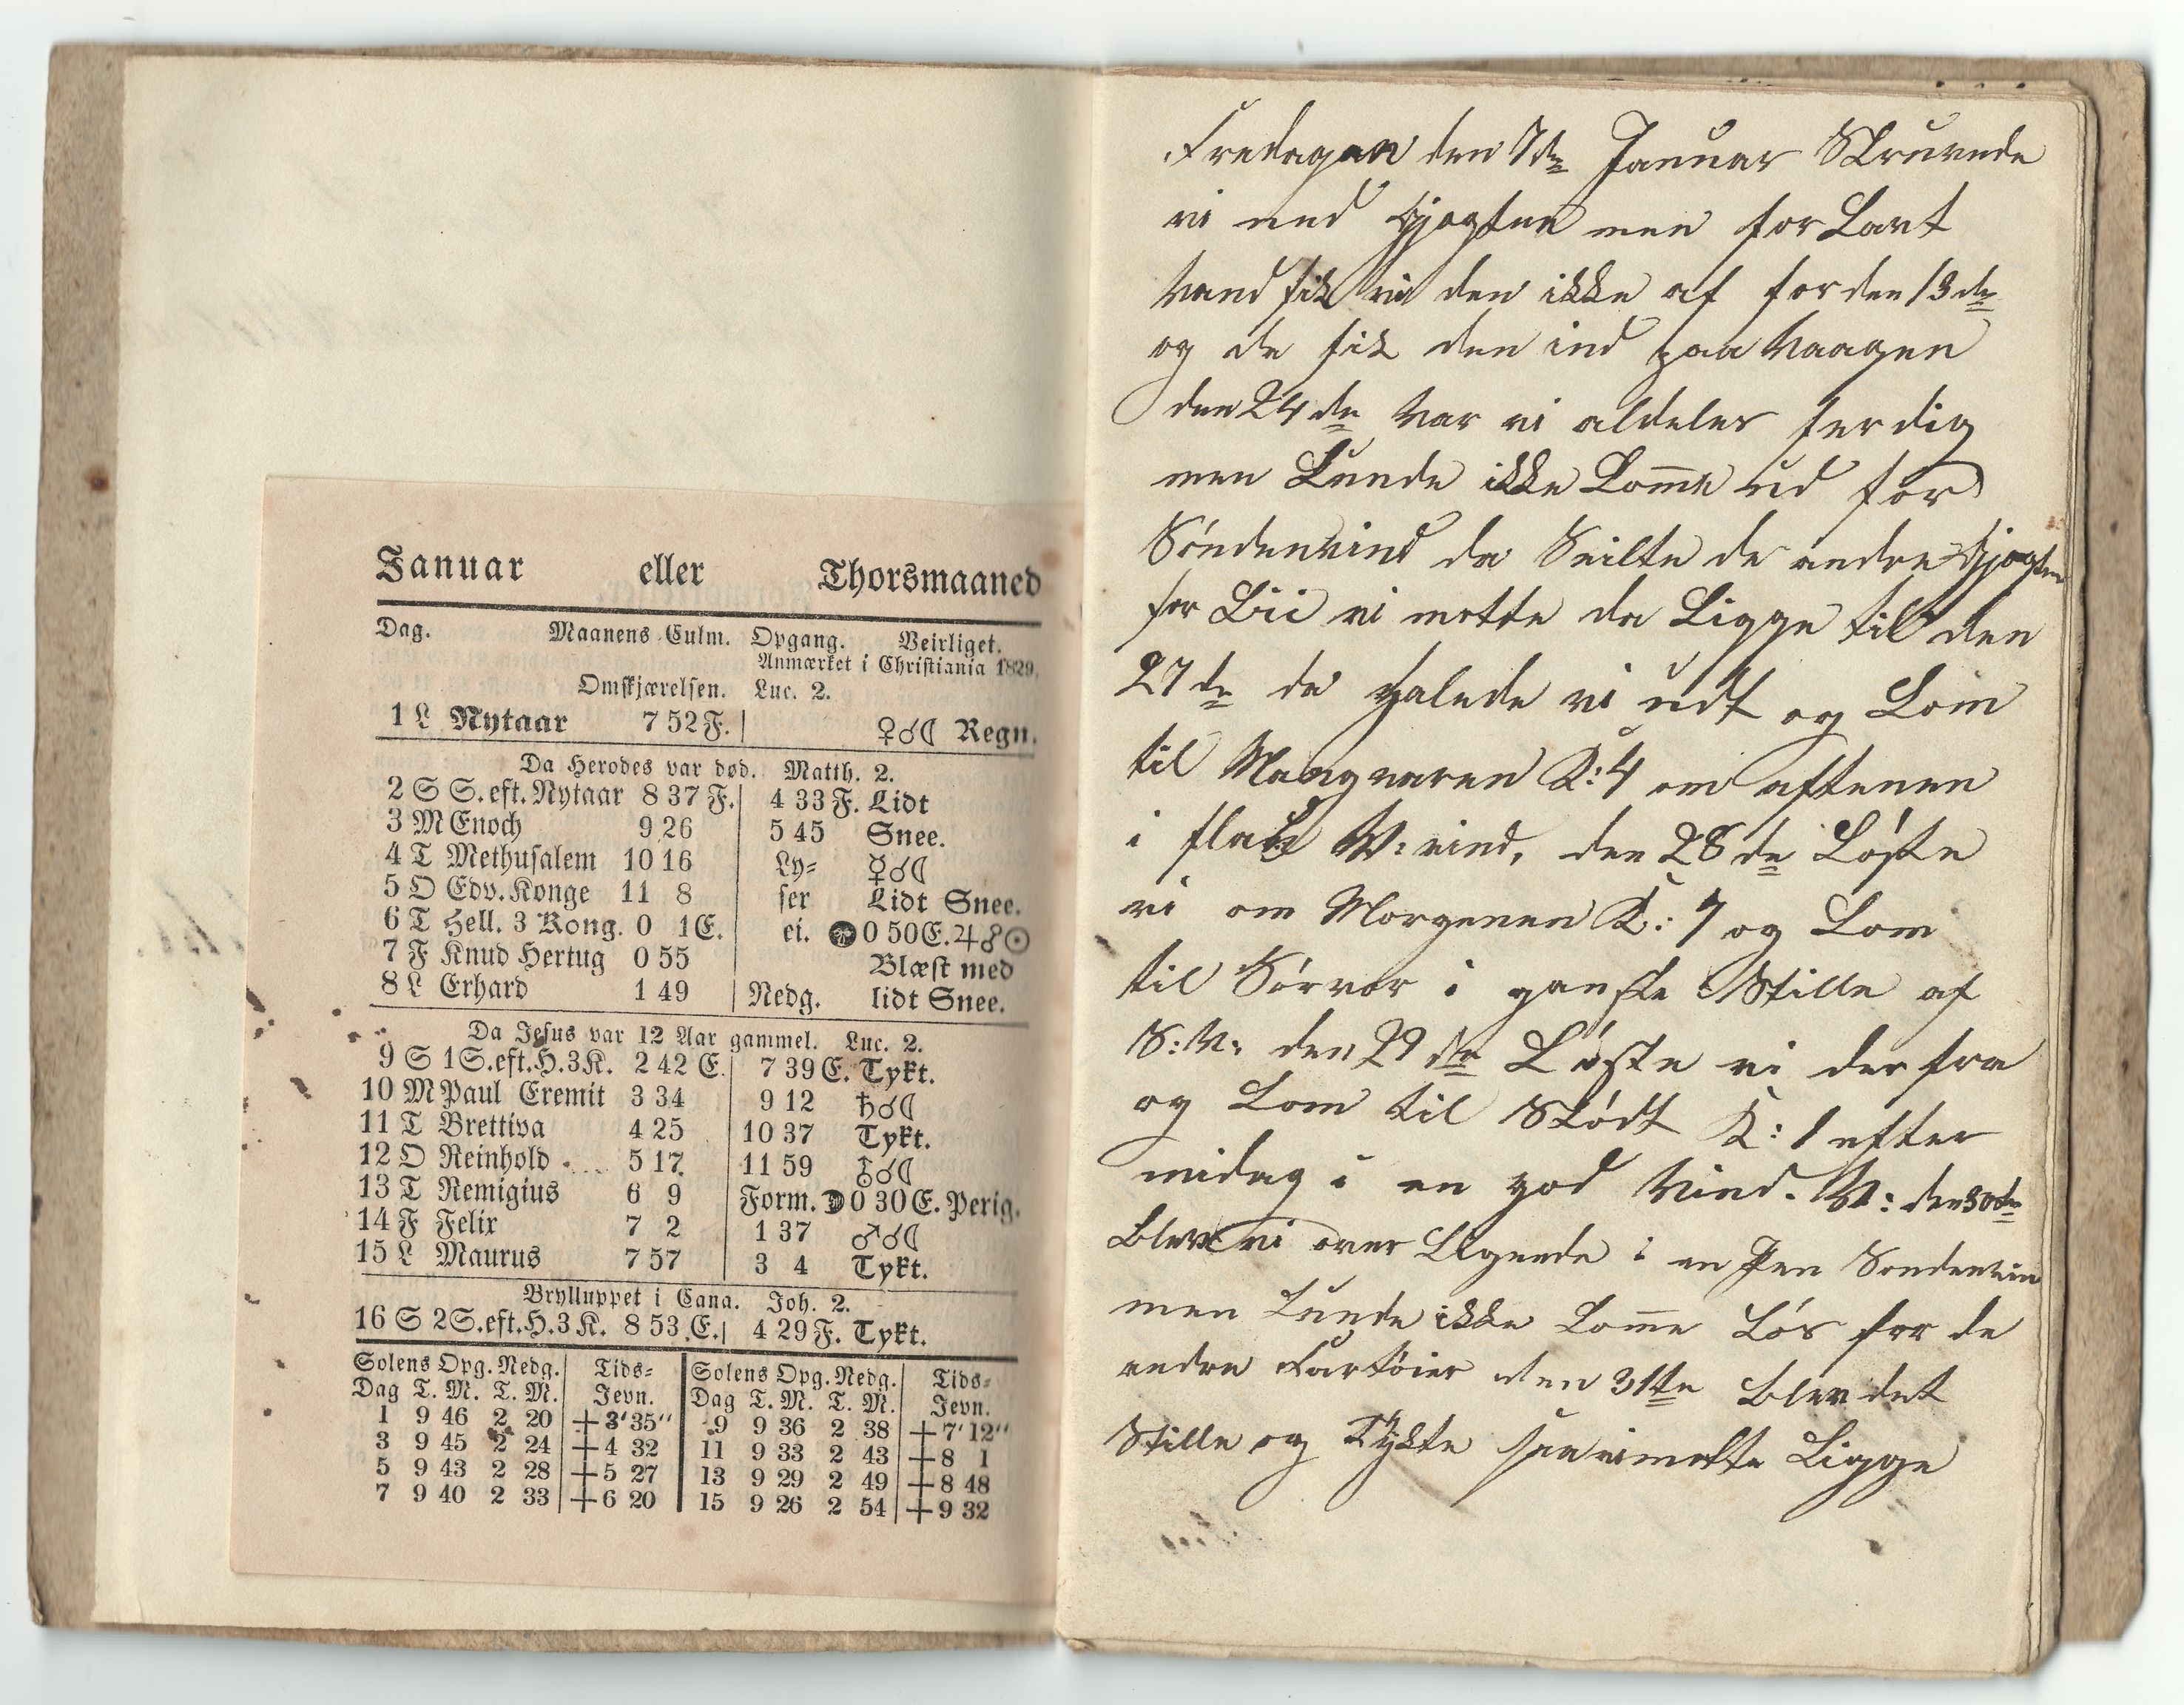 Januar eller Thorsmaaned
Dag. Maanens Culm. Opgang. Veirliget.
Anmærket i Christiania 1829.
Omskjærelsen. Luc. 2.
1 L Nytaar 7 52 F. ♀☌☾ Regn.
Da Herodes var død. Matth. 2.
2 S S. eft. Nytaar 8 37 F. 4 33 F. Lidt
3 M Enoch 9 26 5 45 Snee.
4 T Methusalem 10 16 Ly= ☿☌☾
5 O Edv. Konge 11 8 ser Lidt Snee.
6 T Hell. 3 Kong. 0 1 E. ei. 0 50 E. ♃☍☉
7 F Knud Hertug 0 55 Blæst med
8 L Erhard 1 49 Nedg. lidt Snee.
Da Jesus var 12 Aar gammel. Luc. 2.
9 S 1 S. eft. H. 3 K. 2 42 E. 7 39 E. Tykt.
10 M Paul Eremit 3 34 9 12 ♄☌☾
11 T Brettiva 4 25 10 37 Tykt.
12 O Reinhold 5 17 11 59 ⛢☌☾
13 T Remigius 6 9 Form. 0 30 E. Perig.
14 F Felix 7 2 1 37 ♂☌☾
15 L Maurus 7 57 3 4 Tykt.
Brylluppet i Cana. Joh. 2.
16 S 2 S. eft. H. 3 K. 8 53 E. 4 29 F. Tykt.
Solens Opg. Nedg. Tids= Solens Opg. Nedg. Tids=
Dag T. M. T. M. Jevn. Dag T. M. T. M. Jevn.
1 9 46 2 20 +3'35" 9 9 36 2 38 +7'12"
3 9 45 2 24 +4 32 11 9 33 2 43 +8 1
5 9 43 2 28 +5 27 13 9 29 2 49 +8 48
7 9 40 2 33 +6 20 15 9 26 2 54 +9 32
Fredagen den 7de Januar Skruvede
vi ned Gjogten men for Lavt
Vand fik vi den ikke af for den 13de
og de fik den ind paa Vaagen
den 24de var vi aldeles ferdig
men kunde ikke komme ud for
Søndenvind da Seilte de andre Gjogter
for vi motte da Ligge til den
27de da halede vi udt og kom
til Mangvaren K: 4 om aftenen
i flau V: vind, den 28de Løste
vi om Morgenen K: 7 og kom
til Sørvær i ganske Stille af
S: V: den 29de Løste vi derfra
og kom til Stødt K: 1 efter
midag i en god Vind. V: den 30de
blev vi over Ligende i en Pen Sondenvin
men kunde ikke komme Løs for de
andre Fartøier den 31te blev det
Stille og Tykte saa vi motte Ligge